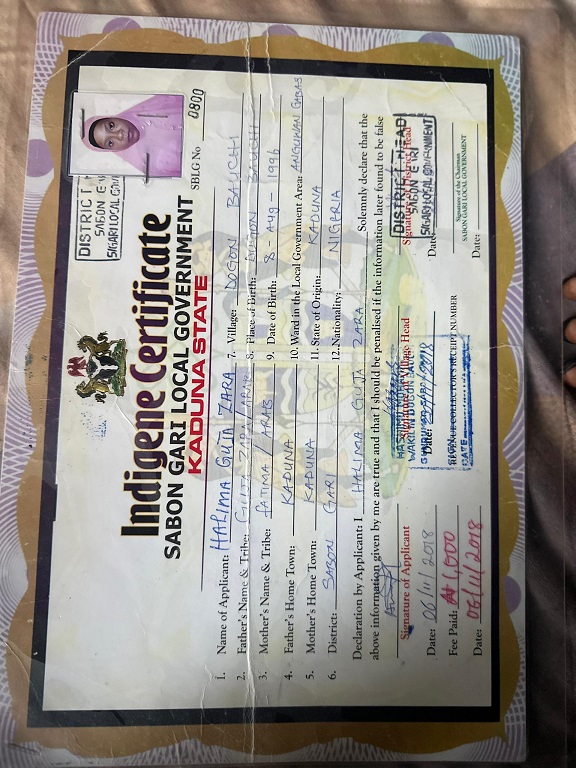 Indigene Certificate
SABON GARI LOCAL GOVERNMENT
KADUNA STATE
DISTRICT HEAD
SABON GARI
S/GARI LOCAL GOVERNMENT
SBLG No 0800
1. Name of Applicant: HALIMA GUJA ZARA
2. Father's Name & Tribe: GUJA ZARA / ARAB
3. Mother's Name & Tribe: FATIMA / ARAB
4. Father's Home Town: KADUNA
5. Mother's Home Town: KADUNA
6. District: SABON GARI
7. Village: DOGON BAUCHI
8. Place of Birth: DOGON BAUCHI
9. Date of Birth: 8 - AUG - 1996
10. Ward in the Local Government Area: ANGUWAN GABAS
11. State of Origin: KADUNA
12. Nationality: NIGERIA
Declaration by Applicant: I HALIMA GUJA ZARA Solemnly declare that the
above information given by me are true and that I should be penalised if the information later found to be false
Signature of Applicant
Date: 06/11/2018
Fee Paid: ₦1,000
Date: 06/11/2018
Signature of Village Head
Date:
REVENUE COLLECTOR'S RECEIPT NUMBER
DATE
DISTRICT HEAD
SABON GARI
S/GARI LOCAL GOVERNMENT
Signature of District Head
Date:
Signature of the Chairman
SABON GARI LOCAL GOVERNMENT
Date: